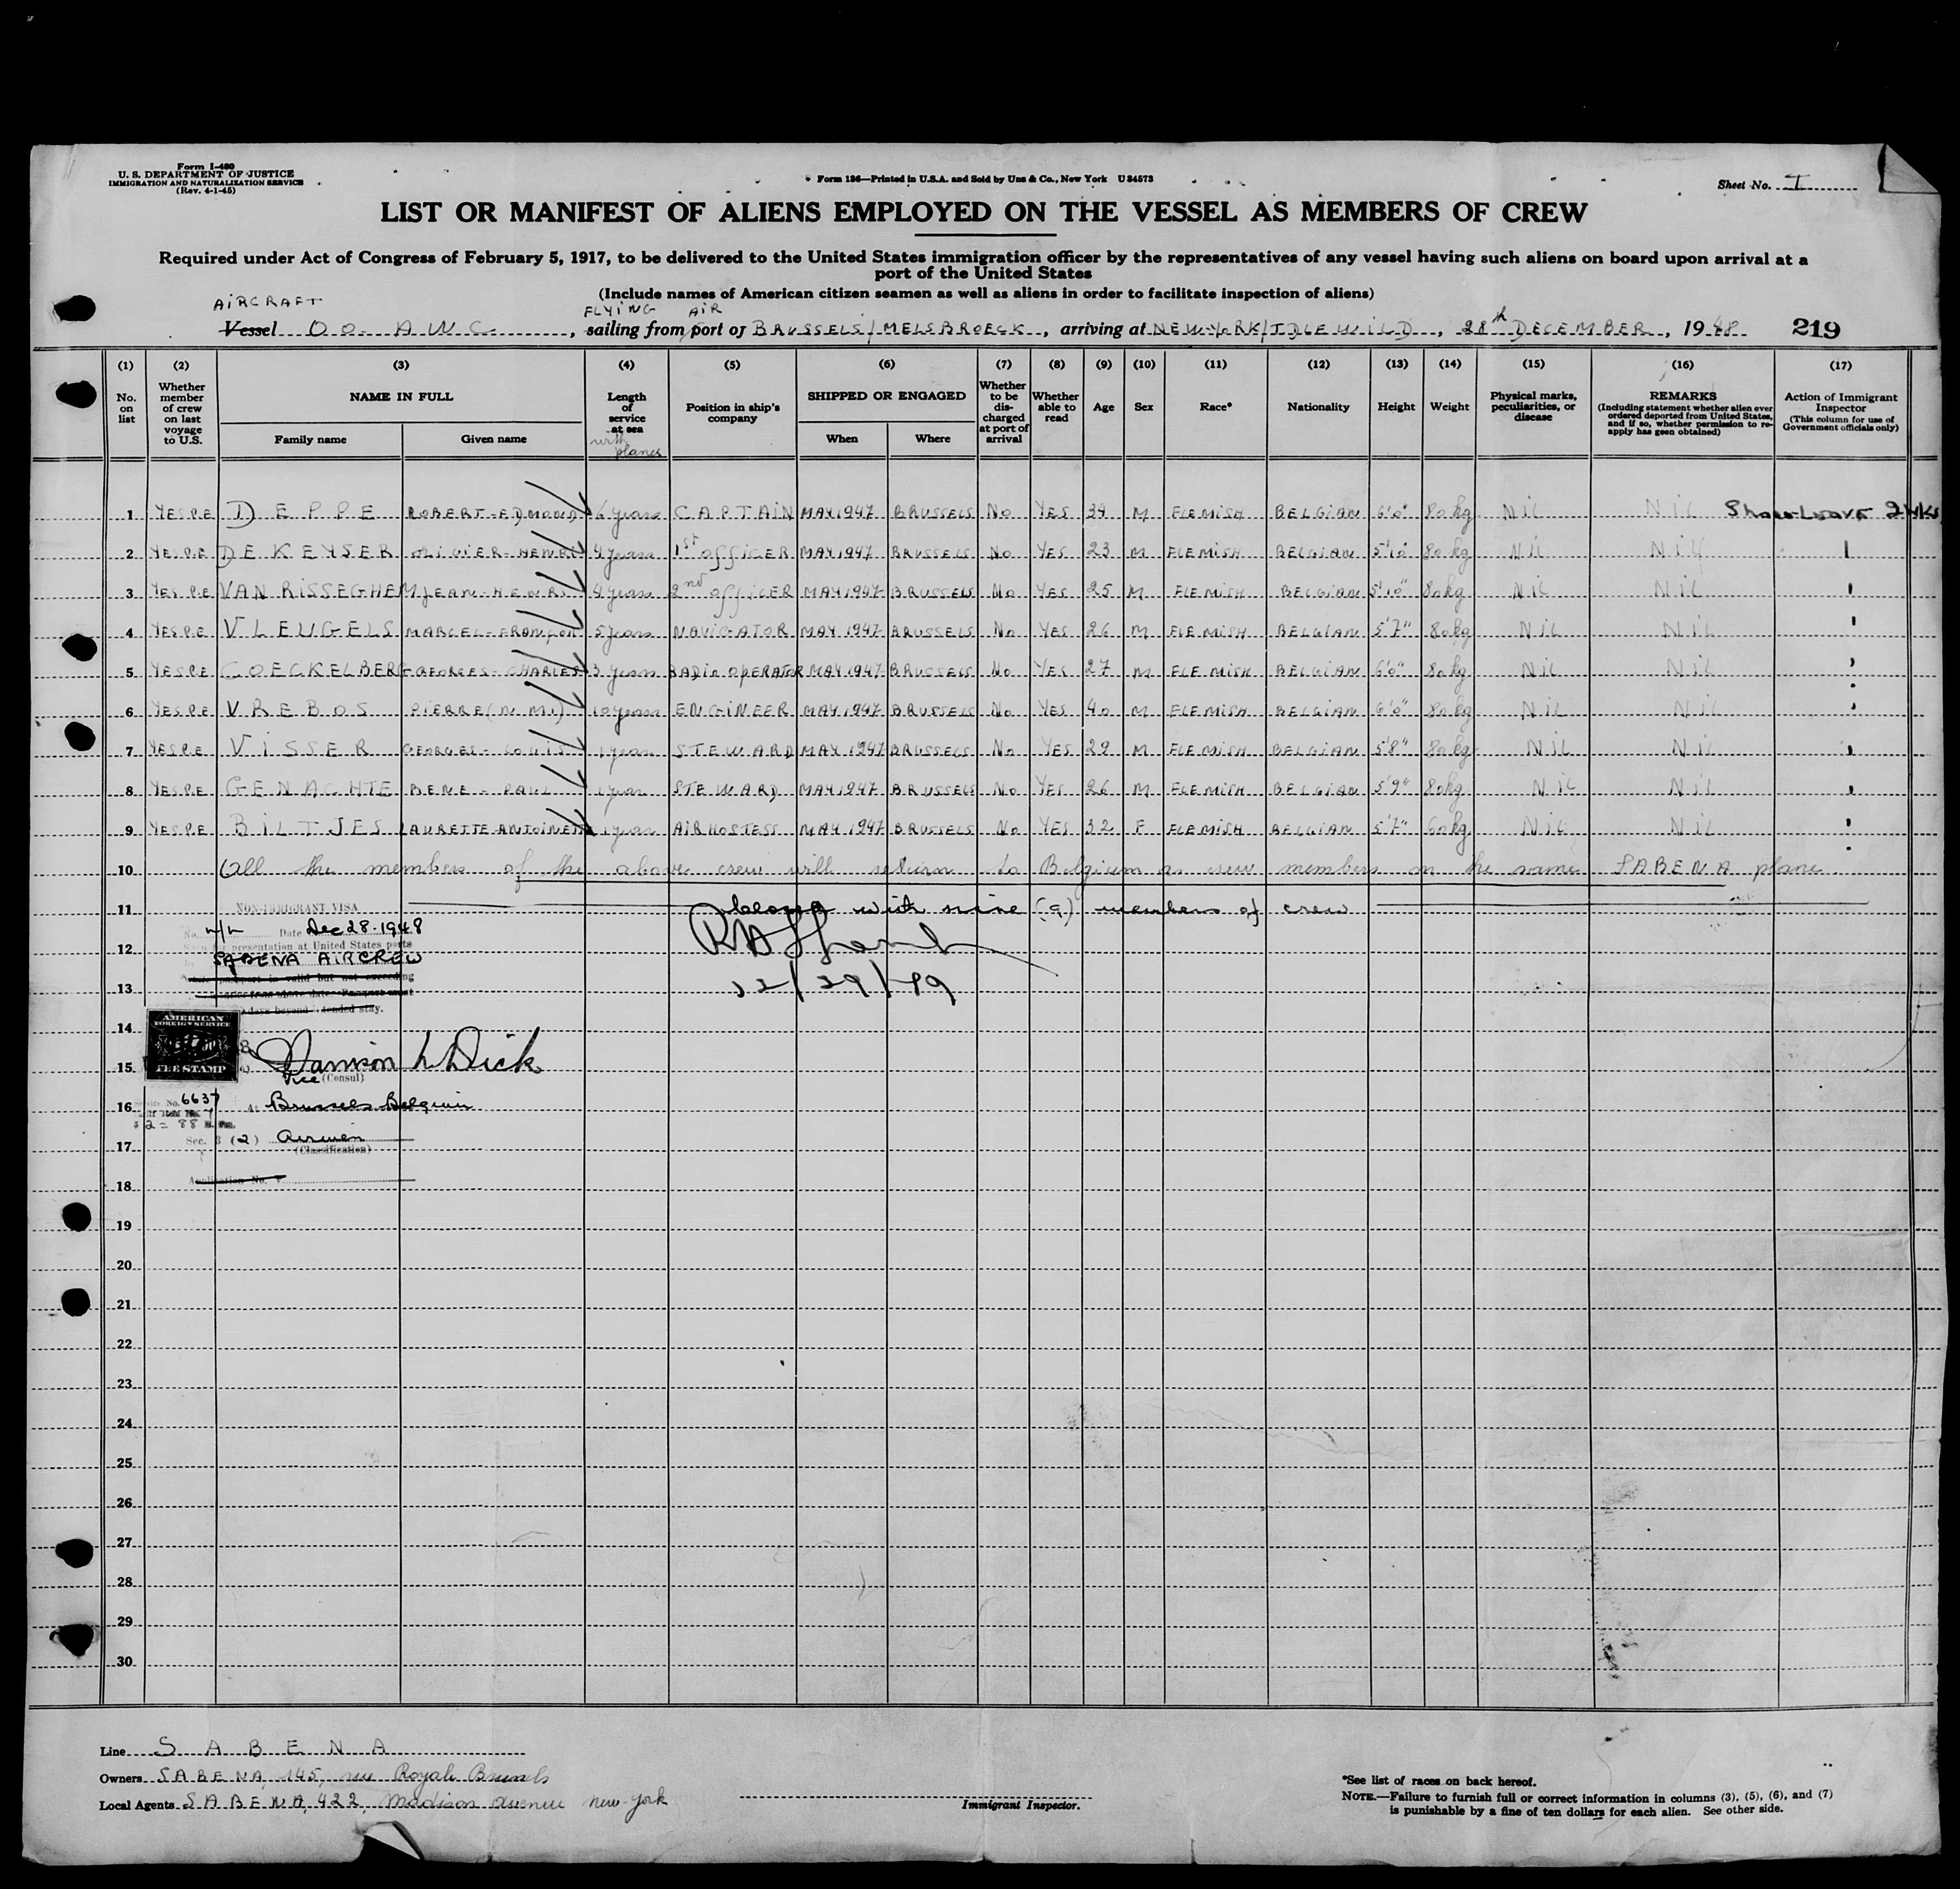 Form I-480
U. S. DEPARTMENT OF JUSTICE
IMMIGRATION AND NATURALIZATION SERVICE
(Rev. 4-1-45)
Form 126—Printed in U.S.A. and Sold by Unz & Co., New York U 34573
Sheet No. I
LIST OR MANIFEST OF ALIENS EMPLOYED ON THE VESSEL AS MEMBERS OF CREW
Required under Act of Congress of February 5, 1917, to be delivered to the United States immigration officer by the representatives of any vessel having such aliens on board upon arrival at a
port of the United States
(Include names of American citizen seamen as well as aliens in order to facilitate inspection of aliens)
AIRCRAFT FLYING AIR
Vessel OO-AWC, sailing from port of BRUSSELS/MELSBROECK, arriving at NEW-YORK/IDLEWILD, 28th DECEMBER, 1948 219
(1) (2) (3) (4) (5) (6) (7) (8) (9) (10) (11) (12) (13) (14) (15) (16) (17)
No. on list
Whether member of crew on last voyage to U.S.
NAME IN FULL
Family name Given name
Length of service at sea with planes
Position in ship's company
SHIPPED OR ENGAGED
When Where
Whether to be discharged at port of arrival
Whether able to read
Age Sex Race* Nationality Height Weight
Physical marks, peculiarities, or disease
REMARKS
(Including statement whether alien ever ordered deported from United States, and if so, whether permission to re-apply has geen obtained)
Action of Immigrant Inspector
(This column for use of Government officials only)
1 YES P.E DEPPE ROBERT-EDMOND 6 years CAPTAIN MAY.1947 BRUSSELS No YES 34 M FLEMISH BELGIAN 6'0" 80kg Nil Nil Shore Leave 2 wks
2 YES P.E DE KEYSER OLIVIER-HENRI 4 years 1st officer MAY.1947 BRUSSELS No YES 23 M FLEMISH BELGIAN 5'10" 80kg Nil Nil
3 YES P.E VAN RISSEGHEM JEAN-HENRI 4 years 2nd officer MAY.1947 BRUSSELS No YES 25 M FLEMISH BELGIAN 5'10" 80kg Nil Nil
4 YES P.E VLEUGELS MARCEL-FRANÇOIS 5 years NAVIGATOR MAY.1947 BRUSSELS No YES 26 M FLEMISH BELGIAN 5'7" 80kg Nil Nil
5 YES P.E COECKELBERG GEORGES-CHARLES 3 years RADIO OPERATOR MAY.1947 BRUSSELS No YES 27 M FLEMISH BELGIAN 6'0" 80kg Nil Nil
6 YES P.E VREBOS PIERRE (N.M.I.) 10 years ENGINEER MAY.1947 BRUSSELS No YES 40 M FLEMISH BELGIAN 6'0" 80kg Nil Nil
7 YES P.E VISSER GEORGES-LOUIS 1 year STEWARD MAY.1947 BRUSSELS No YES 29 M FLEMISH BELGIAN 5'8" 80kg Nil Nil
8 YES P.E GENACHTE RENE-PAUL 1 year STEWARD MAY.1947 BRUSSELS No YES 26 M FLEMISH BELGIAN 5'9" 80kg Nil Nil
9 YES P.E BILTJES LAURETTE-ANTOINETTE 1 year AIR HOSTESS MAY.1947 BRUSSELS No YES 32 F FLEMISH BELGIAN 5'7" 60kg Nil Nil
10 All the members of the above crew will return to Belgium as crew members on the same SABENA plane
11 with nine (9) members of crew
NON-IMMIGRANT VISA
No. Date Dec 28-1948
presentation at United States ports
12
SABENA AIRCREW
12/29/49
13
14
AMERICAN
FOREIGN SERVICE
FEE STAMP
15
Harrison L Dick
Vice (Consul)
Service No. 6637
16 At Brussels Belgium
$2= 88
17 Sec. 3 (2) Airmen
(Classification)
18 Application No.
19
20
21
22
23
24
25
26
27
28
29
30
Line SABENA
Owners SABENA, 145, rue Royale Brussels
Local Agents SABENA, 422, Madison avenue new-york
Immigrant Inspector.
*See list of races on back hereof.
NOTE.—Failure to furnish full or correct information in columns (3), (5), (6), and (7)
is punishable by a fine of ten dollars for each alien. See other side.